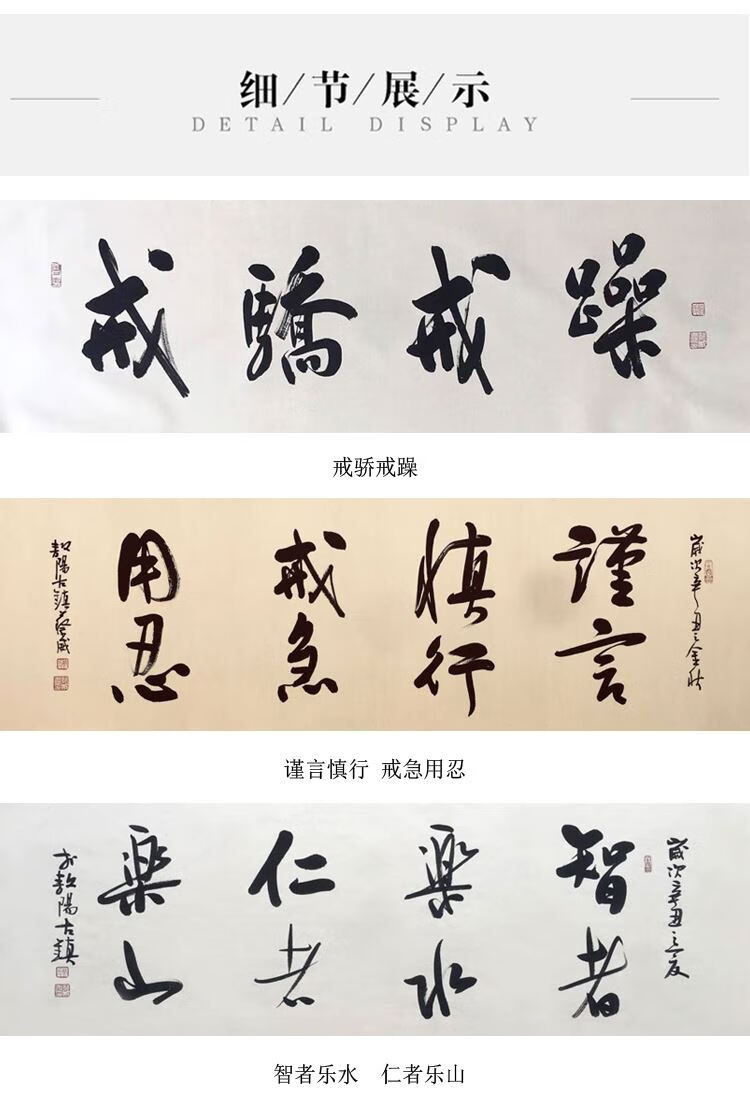 细/节/展/示
DETAIL DISPLAY
戒驕戒躁
戒骄戒躁
歲次辛丑之金秋
謹言
慎行
戒急
用忍
陽古鎮
谨言慎行 戒急用忍
歲次辛丑之夏
智者
樂水
仁者
樂山
於 陽古鎮
智者乐水 仁者乐山